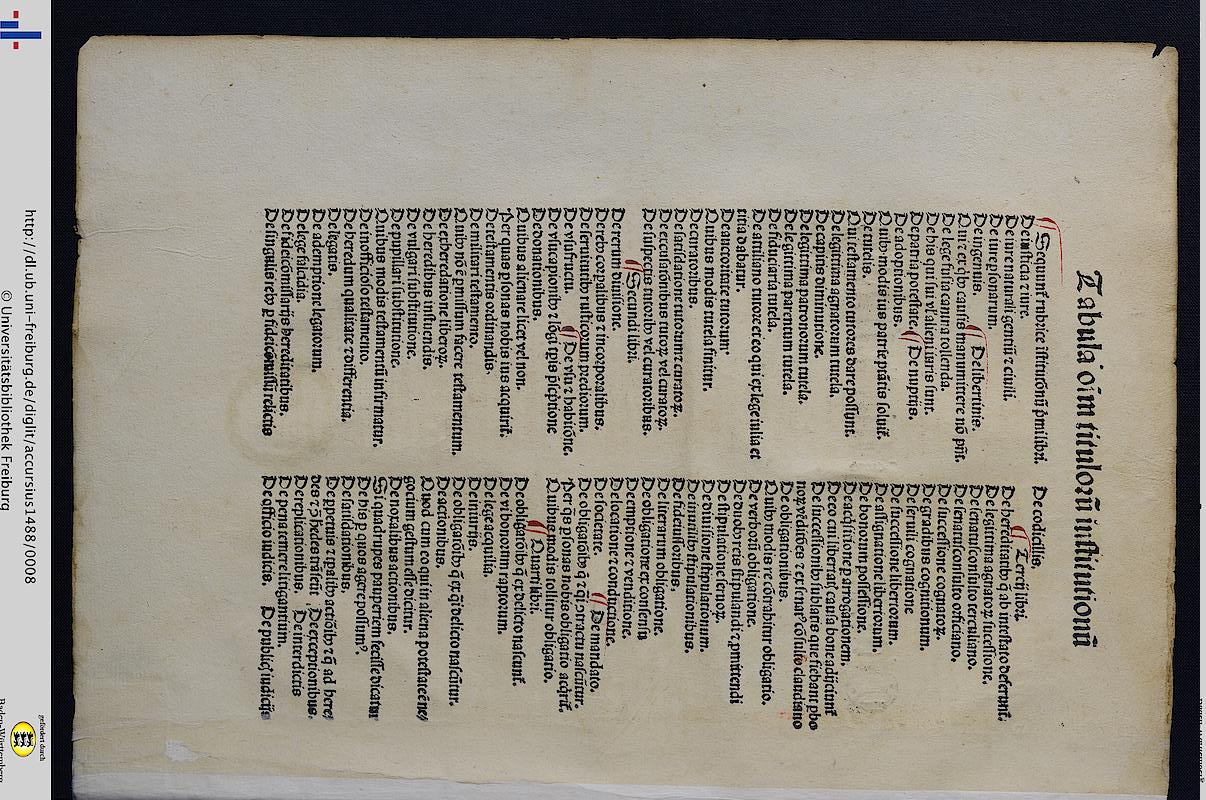 Tabula oīm titulorū institutionū
Sequunt̄ rubrice īstitutōnū p̄mi libri.
De iusticia ⁊ iure.
De iure naturali gentiū ⁊ ciuili.
De iure p̱sonarum.
De ingenuis. De libertinis.
Qui ex q̱bꝰ causis manumittere nō pn̄t.
De lege fusia canina tollenda.
De his qui sui vl̓ alieni iuris sunt.
De patria potestate. De nuptijs.
De adoptionibus.
Quibꝰ modis ius patrie ptātis soluit̄.
De tutelis.
Qui testamento tutores dare possunt.
De legitima agnatorum tutela.
De capitis diminutione.
De legitima patronorum tutela.
De legitima parentum tutela.
De fiduciaria tutela.
De attiliano tutore et eo qui ex lege iulia et
titia dabatur.
De auctoritate tutorum.
Quibus modis tutela finitur.
De curatoribus.
De satisdatione tutorum ⁊ curatoꝝ.
De excusationibus tutoꝝ vel curatoꝝ.
De suspectis tutoribꝰ vel curatoribus.
Secundi libri.
De rerum diuisione.
De rebꝰ corꝑalibus ⁊ incorporalibus.
De seruitutibꝰ rusticorum prediorum.
De vsufructu. De vsu ⁊ habitōne.
De vsucapionibꝰ ⁊ lōgi tꝑis p̄scriptione
De donationibus.
Quibus alienare licet vel non.
Per quas ꝑsonas nobis ius acquirit̄.
De testamentis ordinandis.
De militari testamento.
Quibꝰ nō ē ꝑmissum facere testamentum.
De exheredatione liberoꝝ.
De heredibus instituendis.
De vulgari substitutione.
De pupillari substitutione.
Quibus modis testamentū infirmatur.
De inofficioso testamento.
De heredum qualitate ⁊ differentia.
De legatis.
De ademptione legatorum.
De lege falcidia.
De fideicōmissarijs hereditatibus.
De singulis rebꝰ ꝑ fideicōmissū relictis
De codicillis.
Tercij libri.
De hereditatibꝰ q̄ ab intestato deferunt̄.
De legitima agnatoꝝ successione.
De senatusconsulto tertuliano.
De senatusconsulto orficiano.
De successione cognatoꝝ.
De gradibus cognationum.
De seruili cognatione
De successione libertorum.
De assignatione libertorum.
De bonorum possessione.
De acq̄sitione ꝑ arrogationem.
De eo cui libertat̄ causa bona adijciunt̄
De successionibꝰ sublatis que fiebant ꝑ bo
noꝝ vēditōes ⁊ ex senatꝰcōsulto claudiano
De obligationibus.
Quibꝰ modis re cōtrahitur obligatio.
De verboꝝ obligatione.
De duobꝰ reis stipulandi ⁊ ꝓmittendi
De stipulatione seruoꝝ.
De diuisione stipulationum.
De inutilibꝰ stipulationibus.
De fideiussoribus.
De literarum obligatione.
De obligatione ex consensu
De emptione ⁊ venditione.
De locatione ⁊ conductione.
De societate. De mandato.
De obligatōibꝰ q̄ ⁊ q̄si ɔtractu nascūtur.
Per q̄s ꝑsonas nobis obligatio acq̄rit̄.
Quibus modis tollitur obligatio.
Quarti libri.
De obligatōibꝰ q̄ ex delicto nascunt̄.
De vi bonorum raptorum.
De lege aquilia.
De iniurijs.
De obligatōibꝰ q̄ ex q̄si delicto nascūtur.
De actionibus.
Quod cum eo qui in aliena potestate ē ne
gocium gestum esse dicitur.
De noxalibus actionibus.
Si quadrupes pauperiem fecisse dicatur
De his ꝑ quos agere possumꝰ.
De satisdationibus.
De ꝑpetuis ⁊ tꝑalibꝰ actiōibꝰ ⁊ q̄ ad here
des ⁊ ɔtra heredes trāseūt. De exceptionibus.
De replicationibus. De interdictis
De pena temere litigantium.
De officio iudicis. De publicꝭ iudicijs
http://dl.ub.uni-freiburg.de/diglit/accursius1488/0008
© Universitätsbibliothek Freiburg
gefördert durch
Baden-Württemberg